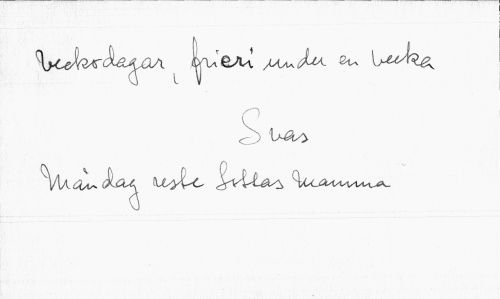 Veckodagar, frieri under en vecka
Svas
Måndag reste Lottas Mamma